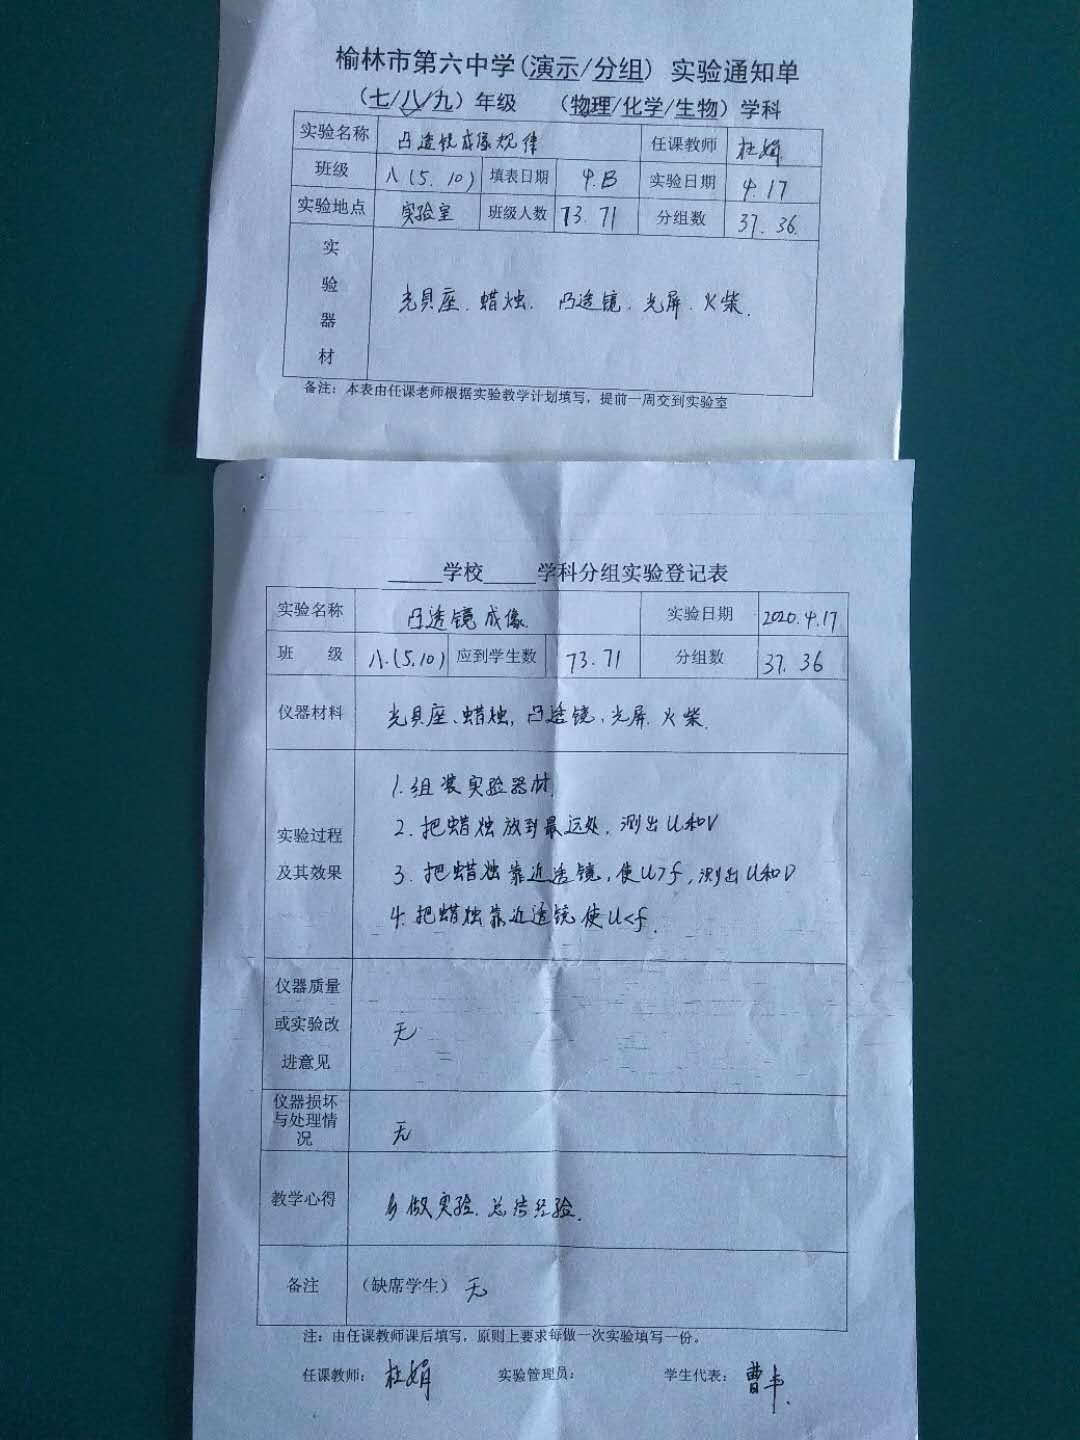 榆林市第六中学(演示/分组) 实验通知单
(七/八/九) 年级 (物理/化学/生物) 学科
实验名称 凸透镜成像规律 任课教师 杜娟
班级 八(5.10) 填表日期 4.13 实验日期 4.17
实验地点 实验室 班级人数 73.71 分组数 37.36.
实验器材 光具座.蜡烛. 凸透镜.光屏.火柴.
备注: 本表由任课老师根据实验教学计划填写, 提前一周交到实验室
_____学校_____学科分组实验登记表
实验名称 凸透镜成像. 实验日期 2020.4.17
班 级 八.(5.10) 应到学生数 73.71 分组数 37.36
仪器材料 光具座、蜡烛, 凸透镜、光屏.火柴.
实验过程及其效果
1.组装实验器材.
2.把蜡烛放到最远处.测出u和v
3.把蜡烛靠近透镜,使u>f,测出u和v
4.把蜡烛靠近透镜使u<f.
仪器质量或实验改进意见 无
仪器损坏与处理情况 无
教学心得 多做实验.总结经验.
备注 (缺席学生) 无
注: 由任课教师课后填写, 原则上要求每做一次实验填写一份。
任课教师: 杜娟 实验管理员: 学生代表: 曹丰.